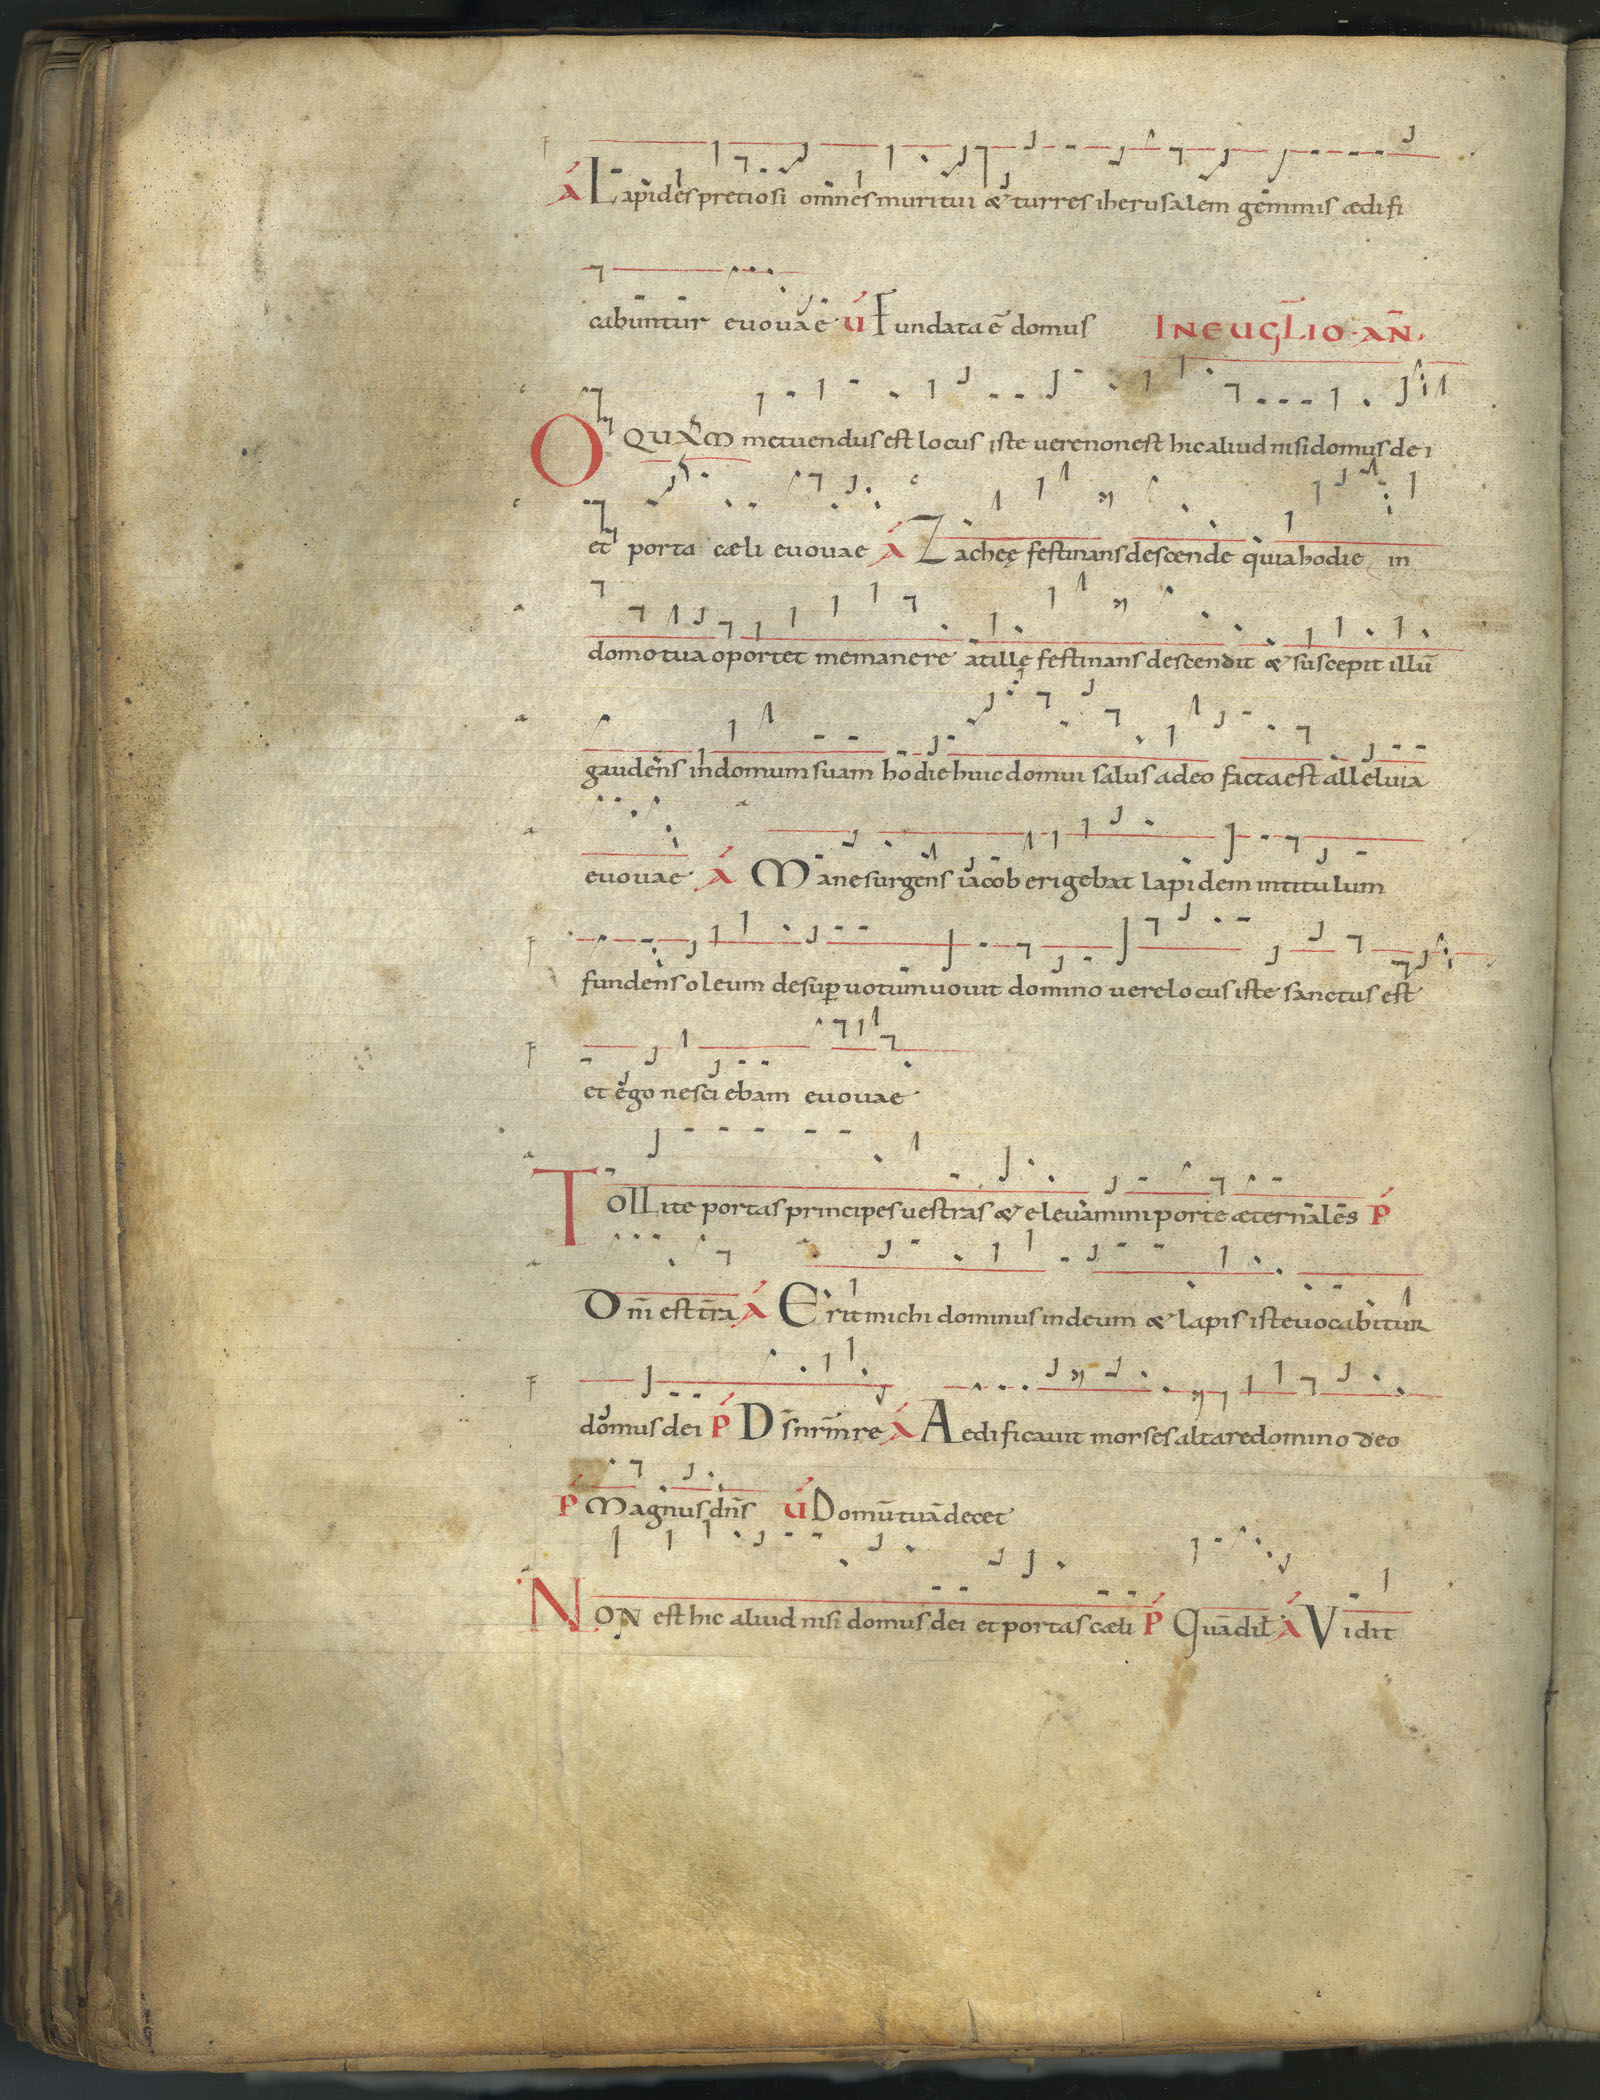 A Lapides pretiosi omnes muri tui & turres iherusalem gemmis ædifi
cabuntur euouae U Fundata ē domus IN EUGLIO · AN̄.
O QUAM metuendus est locus iste uere non est hic aliud nisi domus dei
et porta cæli euouae A Zacheę festinans descende quia hodie in
domo tua oportet me manere at illę festinans descendit & suscepit illū
gaudens in domum suam hodie huic domui salus a deo facta est alleluia
euouae A Mane surgens iacob erigebat lapidem in titulum
fundens oleum desup uotum uouit domino uere locus iste sanctus est
et ego nesciebam euouae
Tollite portas principes uestras & eleuamini porte æternales P
Dn̄i est tr̄a A Erit michi dominus in deum & lapis iste uocabitur
domus dei P D s̄ nr̄m re A Aedificauit morses altare domino deo
P Magnus dn̄s U Domū tuā decet
Non est hic aliud nisi domus dei et portas cæli P Quā dil A Vidit